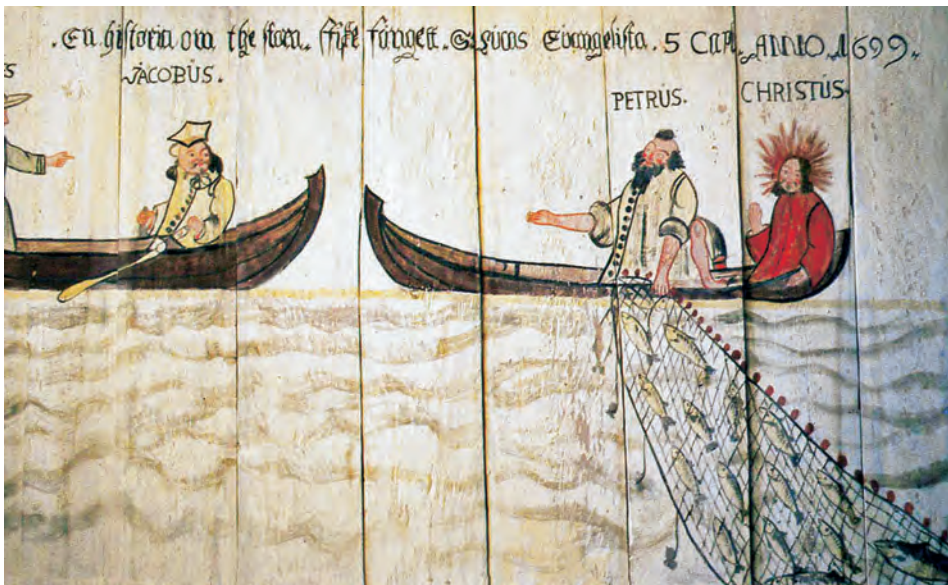 . En historia om the stora. ffiske fångett. S. Lucas Evangelista. 5 CAP. ANNO. 1699.
S
JACOBUS.
PETRUS.
CHRISTUS.